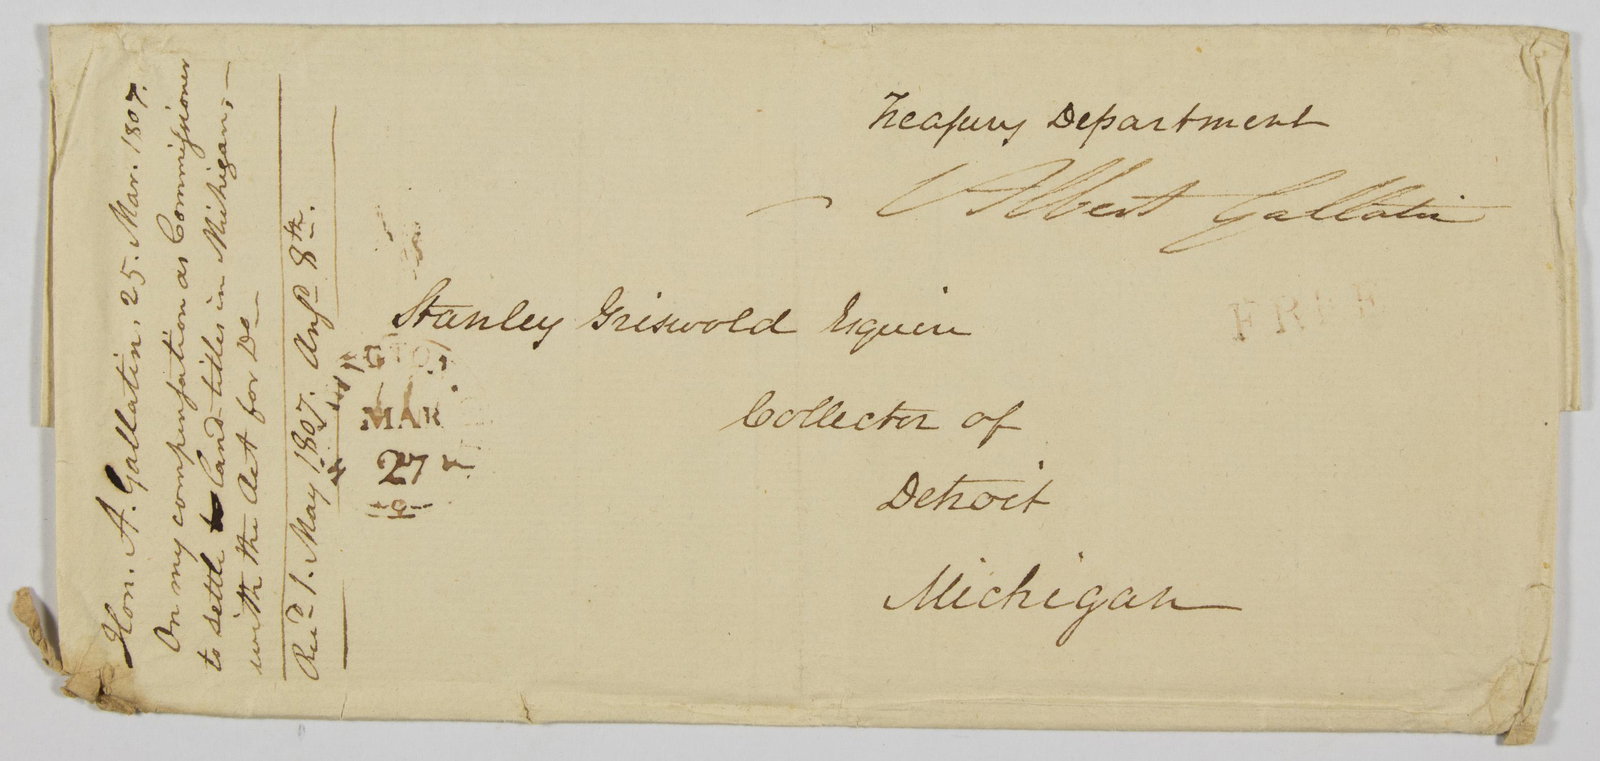 Treasury Department
Albert Gallatin
FREE
Stanley Griswold Esquire
Collector of
Detroit
Michigan
MAR
27
Hon. A. Gallatin, 25. Mar. 1807.
On my compensation as Commissioner
to settle Land titles in Michigan, —
with the Act for Do —
Recd 1. May 1807. Ansd 8th.